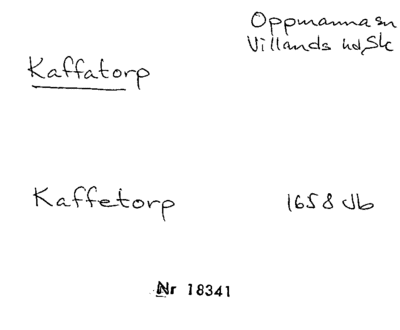 Oppmanna sn
Villands hd, Sk
Kaffatorp
Kaffetorp 1658 Jb
Nr 18341